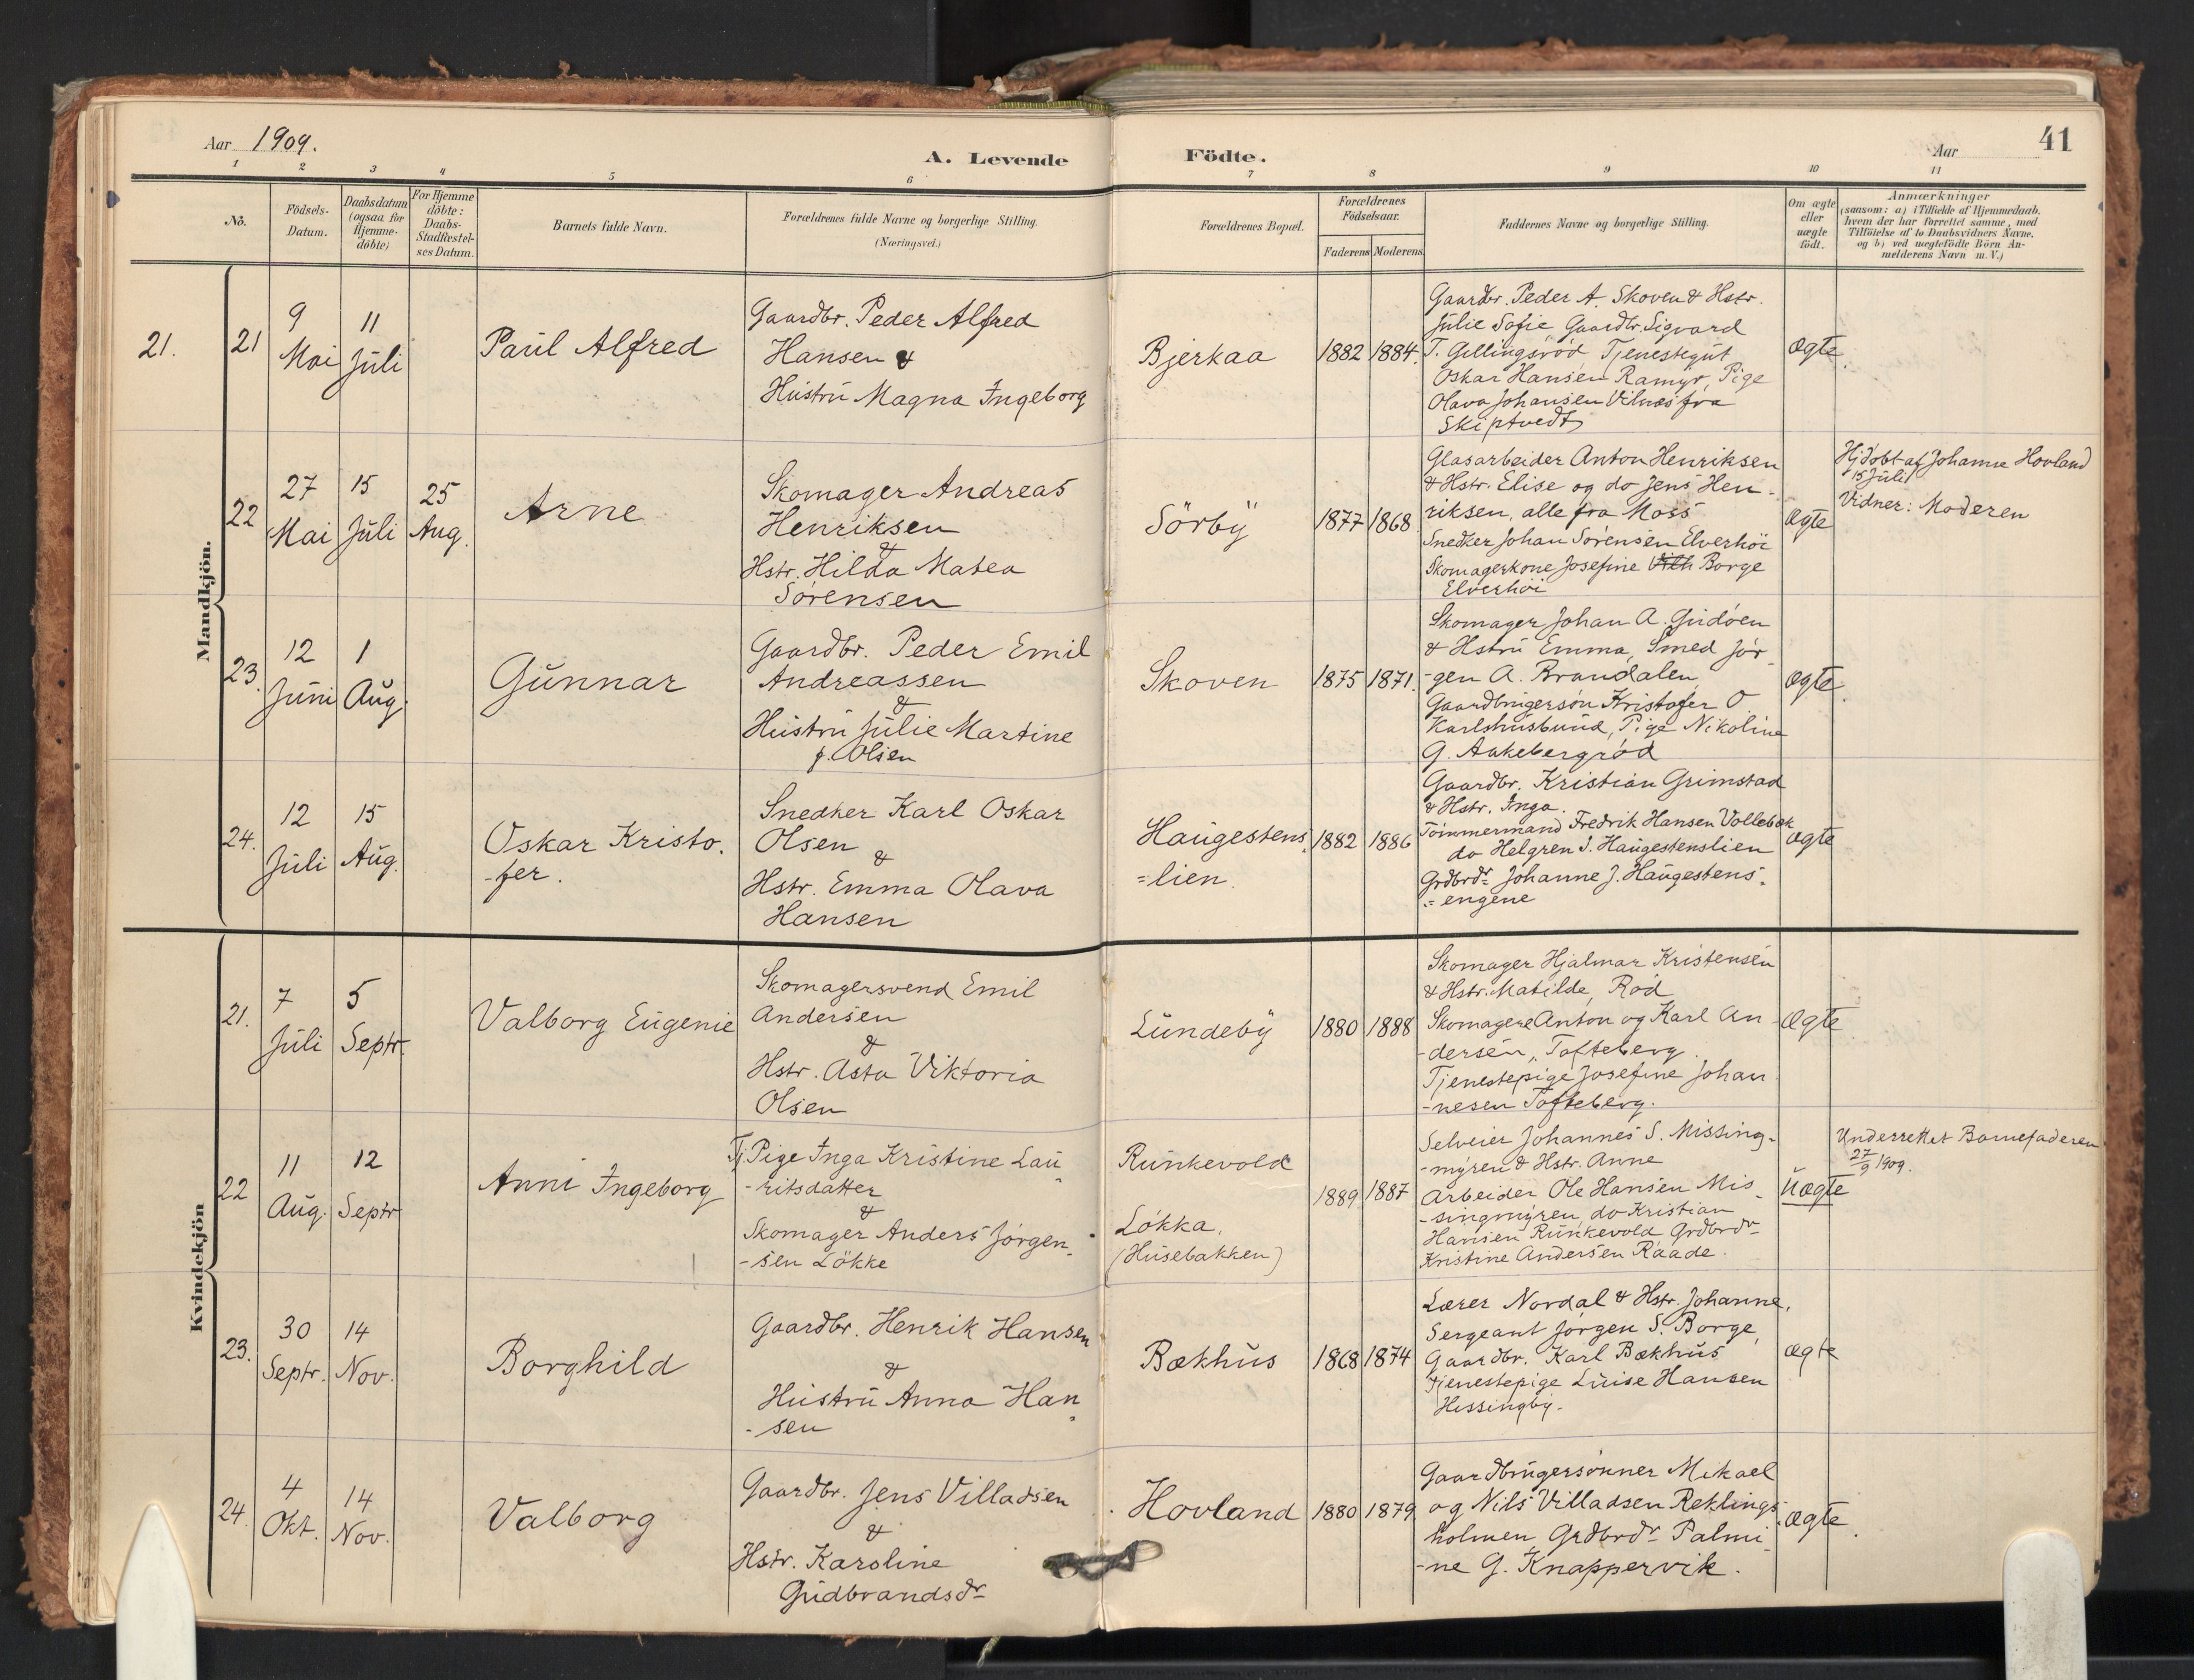 Aar 1909.
A. Levende Födte.
Aar
41
1 2 3 4 5 6 7 8 9 10 11
No.
Födsels-
Datum.
Daabsdatum
(ogsaa for
Hjemme-
döbte)
For Hjemme
döbte:
Daabs-
Stadfæstel-
ses Datum.
Barnets fulde Navn.
Forældrenes fulde Navne og borgerlige Stilling.
(Næringsvei.)
Forældrenes Bopæl.
Forældrenes
Födselsaar.
Faderens Moderens
Faddernes Navne og borgerlige Stilling.
Om ægte
eller
uægte
födt.
Anmærkninger
(saasom: a) i Tilfælde af Hjemmedaab,
hvem der har forrettet samme, med
Tilföielse af to Daabsvidners Navne,
og b) ved uægtefödte Börn An-
melderens Navn m. V.)
Mandkjön.
21.
21
9
Mai
11
Juli
Paul Alfred
Gaardbr. Peder Alfred
Hansen &
Hustru Magna Ingeborg
Bjerkaa
1882 1884.
Gaardbr. Peder A. Skoven & Hstr.
Julie Sofie Gaardbr. Sigvard
T. Gillingsröd Tjenestegut
Oskar Hansen Ramyr, Pige
Olava Johansen Vilnæs fra
Skiptvedt
ægte.
22
27
Mai
15
Juli
25
Aug.
Arne
Skomager Andreas
Henriksen
&
Hstr. Hilda Matea
Sörensen
Sörby
1877 1868
Glasarbeider Anton Henriksen
& Hstr. Elise og do Jens Hen-
riksen, alle fra Moss
Snedker Johan Sörensen Elverhöi
Skomagerkone Josefine Borge
Elverhöi
ægte
Hjdöbt af Johanne Hovland
15 Juli
Vidner: Moderen
23.
12
Juni
1
Aug.
Gunnar
Gaardbr. Peder Emil
Andreassen
&
Hustru Julie Martine
f. Olsen
Skoven
1875 1871.
Skomager Johan A. Gudöen
& Hstru Emma, Smed Jör-
-gen A. Brandalen
Gaardbrugersön Kristofer O
Karlshusbund, Pige Nikoline
G. Aakebergröd
ægte.
24.
12
Juli
15
Aug.
Oskar Kristo-
-fer.
Snedker Karl Oskar
Olsen
&
Hstr. Emma Olava
Hansen
Haugestens
=lien.
1882 1886
Gaardbr. Kristian Grimstad
& Hstr. Inga.
Tömmermand Fredrik Hansen Vollebæk
do Helgren J. Haugestenslien
Grdbrdr. Johanne J. Haugestens-
=engene
ægte
Kvindekjön
21.
7
Juli
5
Septr.
Valborg Eugenie
Skomagersvend Emil
Andersen
&
Hstr. Asta Viktoria
Olsen
Lundeby
1880 1888
Skomager Hjalmar Kristensen
& Hstr. Matilde, Röd
Skomagere Anton og Karl An-
-dersen, Tofteberg
Tjenestepige Josefine Johan
-nesen Tofteberg.
ægte
22
11
Aug.
12
Septr
Anni Ingeborg
Tj. Pige Inga Kristine Lau-
-ritsdatter
&
Skomager Anders Jörgen-
-sen Lökke
Runkevold
Lökka.
(Husebakken)
1889 1887
Selveier Johannes S. Missing-
-myren & Hstr. Anne
Arbeider Ole Hansen Mis-
-singmyren, do Kristian
Hansen Runkevold Grdbrdr
Kristine Andersen Raade.
Uægte
Underrettet Barnefaderen
27/9 1909.
23.
30
Septr.
14
Nov.
Borghild
Gaardbr. Henrik Hansen
&
Hustru Anna Han
-sen
Bækhus
1868 1874
Lærer Nordal & Hstr. Johanne,
Sergeant Jörgen S. Borge,
Gaardbr. Karl Bækhus
Tjenestepige Luise Hansen
Hissingby.
ægte
24.
4
Okt.
14
Nov.
Valborg
Gaardbr. Jens Villadsen
&
Hstr. Karoline
Gudbrandsdr
Hovland
1880 1879
Gaardbrugersönner Mikael
og Nils Villadsen Reklings-
holmen, Grdbrdr Palmi-
-ne G. Knappervik.
ægte.